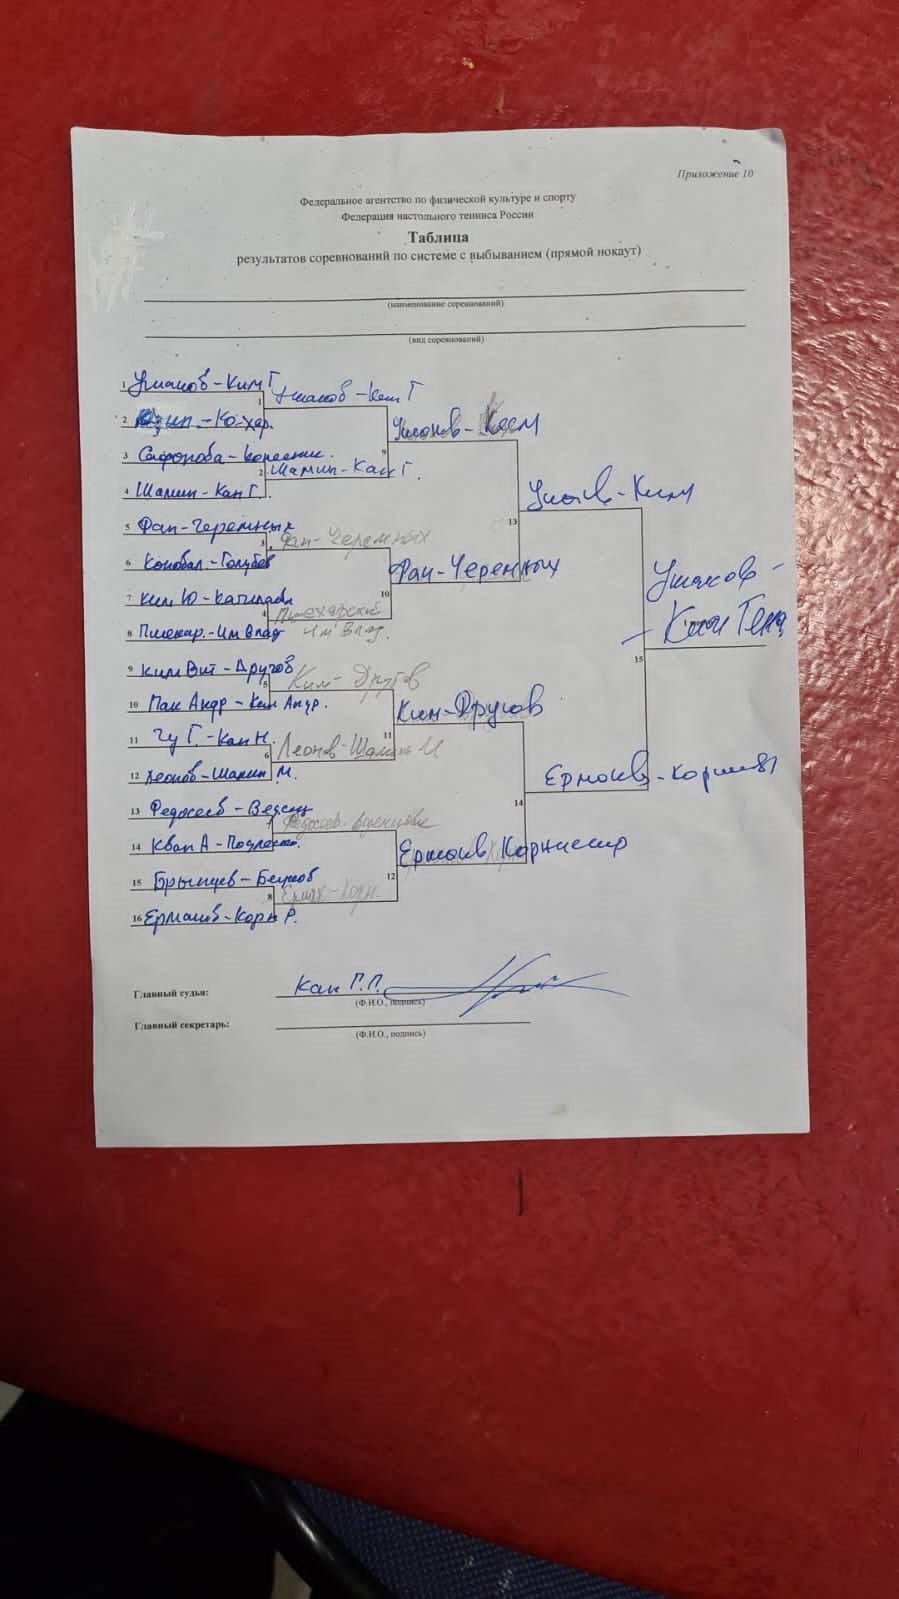 Приложение 10
Федеральное агентство по физической культуре и спорту
Федерация настольного тенниса России
Таблица
результатов соревнований по системе с выбыванием (прямой нокаут)
(наименование соревнований)
(вид соревнований)
1 Ушаков-Ким Г
1 Ушаков-Ким Г
2
Ушаков-Ким
9
3
2 Шамин-Кан Г.
4 Шамин-Кан Г.
Ушаков-Ким
13
5 Фан-Черемных
3 Фан-Черемных
6 Коновал-Голубев
Фан-Черемных
10
7 Ким Ю-
4
Им Влад.
8 Пшехар.-Им Влад
Ушаков-
Ким Гена
15
9 Ким Вит-Другов
5 Ким-Другов
10 Пак Андр-Ким Андр.
Ким-Другов
11
11 Чу Г.-Кан Н.
6 Леонов-Шамин М
12 Леонов-Шамин М.
14
13 Федосеев-
7
14 Кван А-
12
15 Брынцев-
8 Ермак-Корн.
16 Ермаков-Корн Р.
Главный судья: Кан Г.Г.
(Ф.И.О., подпись)
Главный секретарь:
(Ф.И.О., подпись)